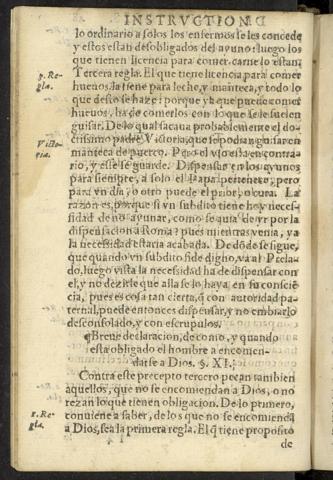 INSTRVCTION
lo ordinario a solos los enfermos se les concede
y estos estan desobligados del ayuno: luego los
que tienen licencia para comer carne lo estan.
3. Re-
gla.
Tercera regla. El que tiene licencia para comer
hueuos, la tiene para leche, y manteca, y todo lo
que desto se haze: porque ya que puede comer
hueuos, ha de comerlos con lo que se le suelen
guisar. De lo qual sacaua probablemente el do-
Victo-
ria.
ctissimo padre Victoria, que se podian guisar en
manteca de puerco. Pero el vso esta en contra-
rio, y este se guarde. Dispensar en los ayunos
para siempre, a solo el Papa pertenece; pero
para vn dia, o otro puede el prior, o cura. La
razon es, porque si vn subdito tiene hoy neces-
sidad de no ayunar, como se auia de yr por la
dispensacion a Roma? pues mientras venia, ya
la necessidad estaria acabada. De dõde se sigue,
que quando vn subdito fide digno, va al Prela-
do, luego vista la necessidad ha de dispensar con
el, y no dezirle que alla se lo haya en su consciẽ
cia, pues es cosa tan cierta, q̃ con autoridad pa-
ternal, puede entonces dispensar, y no embiarlo
desconsolado, y con escrupulos.
¶Breue declaracion, de como, y quando
esta obligado el hombre a encomen-
darse a Dios. §. XI.
Contra este precepto tercero pecan tambien
aquellos, que no se encomiendan a Dios, o no
rezan lo que tienen obligacion. De lo primero,
1. Re-
gla.
conuiene a saber, de los que no se encomiendã
a Dios, sea la primera regla. El q̃ tiene proposito
de